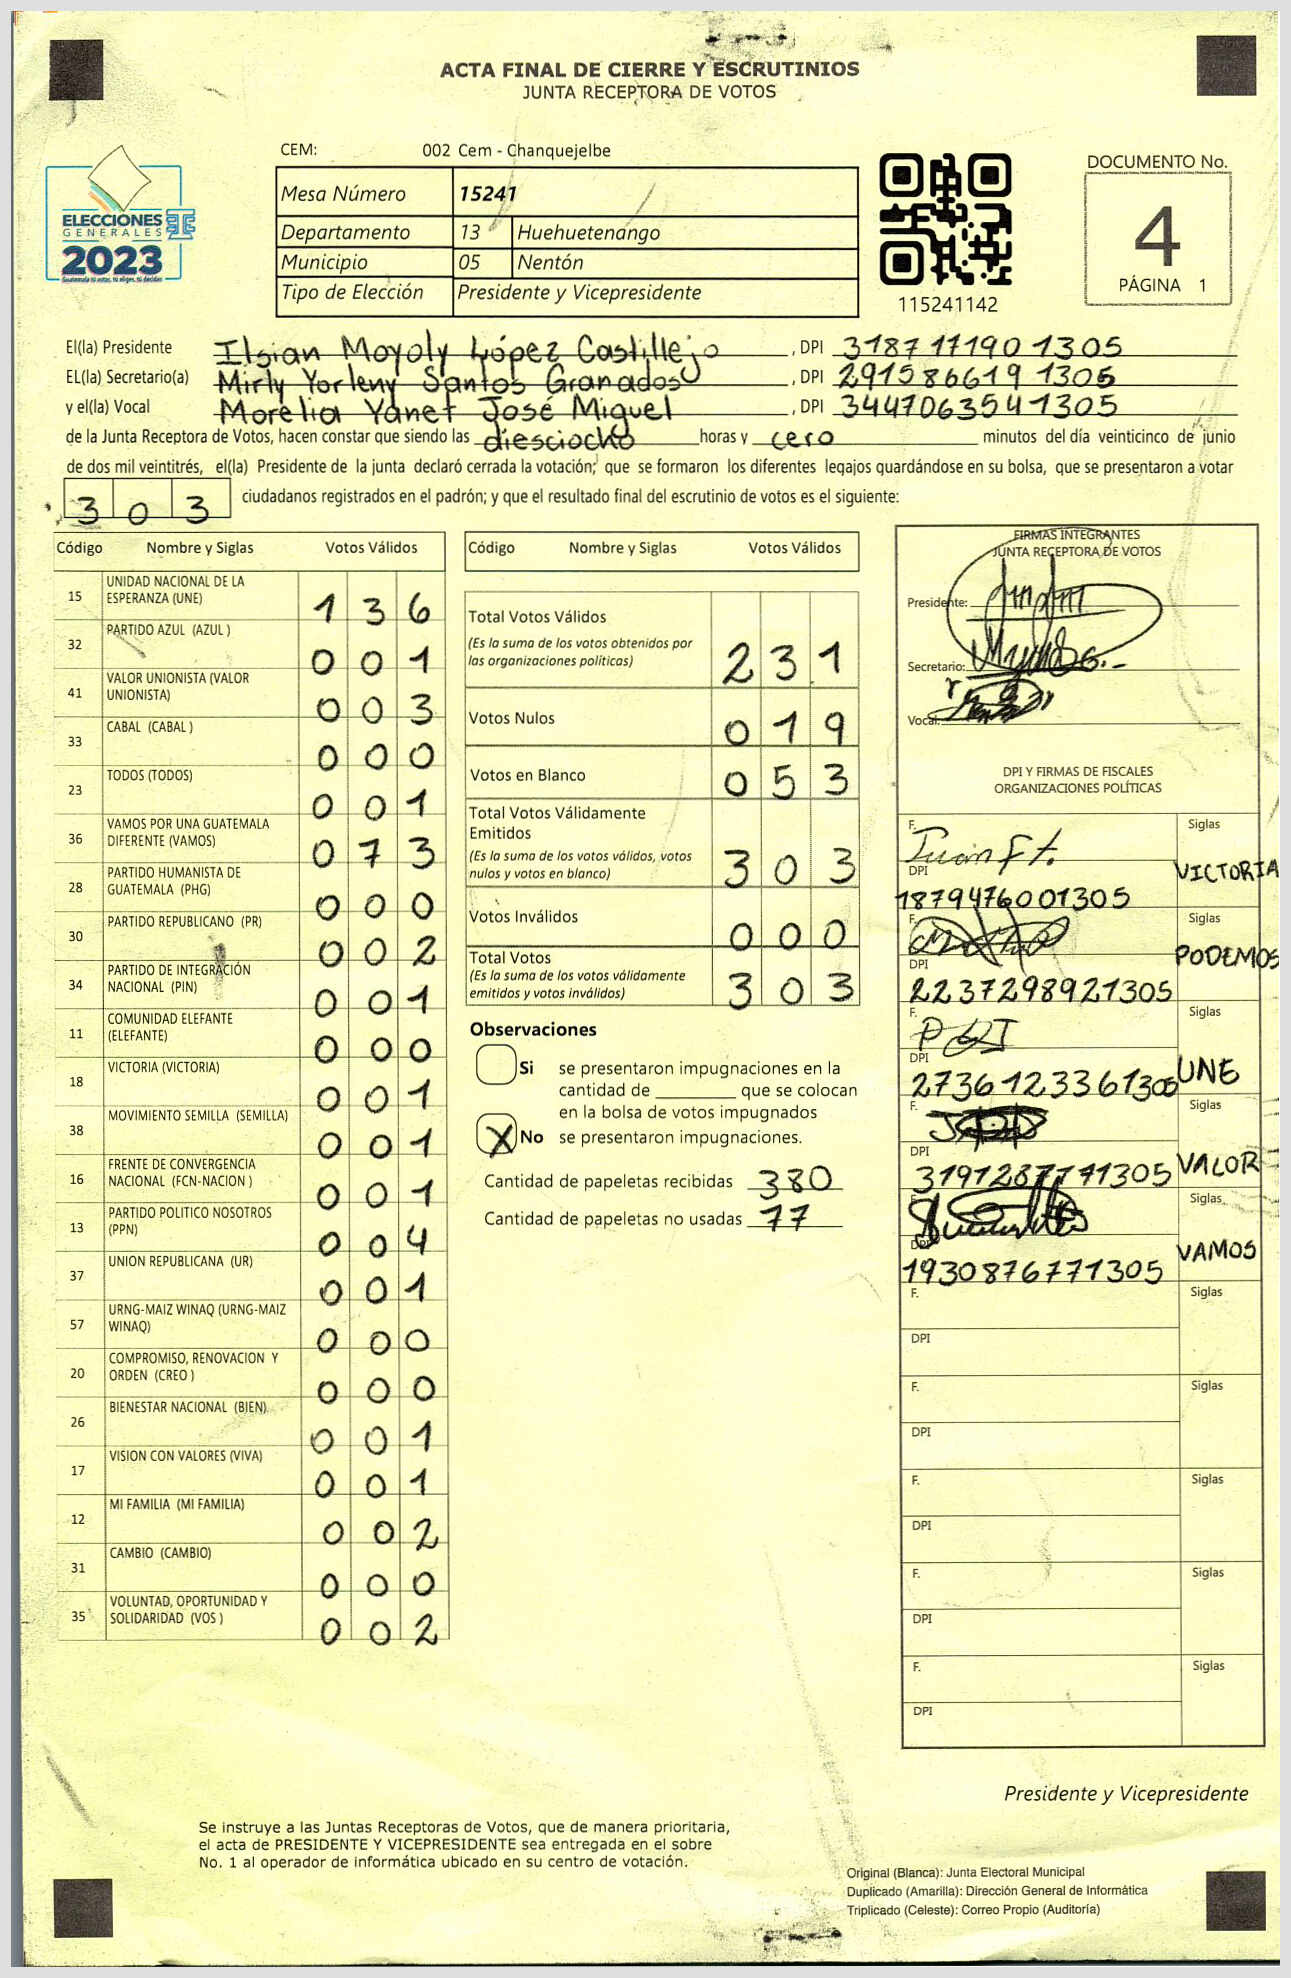 ACTA FINAL DE CIERRE Y ESCRUTINIOS
JUNTA RECEPTORA DE VOTOS
ELECCIONES
GENERALES
2023
Guatemala tú votas, tú eliges, tú decides
CEM: 002 Cem - Chanquejelbe
Mesa Número 15241
Departamento 13 Huehuetenango
Municipio 05 Nentón
Tipo de Elección Presidente y Vicepresidente
115241142
DOCUMENTO No.
4
PÁGINA 1
El(la) Presidente Ilsian Moyoly López Castillejo , DPI 3187171901305
EL(la) Secretario(a) Mirly Yorleny Santos Granados , DPI 2915866191305
y el(la) Vocal Morelia Yanet José Miguel , DPI 3447063541305
de la Junta Receptora de Votos, hacen constar que siendo las diesciocho horas y cero minutos del día veinticinco de junio
de dos mil veintitrés, el(la) Presidente de la junta declaró cerrada la votación; que se formaron los diferentes legajos guardándose en su bolsa, que se presentaron a votar
303 ciudadanos registrados en el padrón; y que el resultado final del escrutinio de votos es el siguiente:
Código Nombre y Siglas Votos Válidos
15 UNIDAD NACIONAL DE LA
ESPERANZA (UNE) 136
32 PARTIDO AZUL (AZUL ) 001
41 VALOR UNIONISTA (VALOR
UNIONISTA) 003
33 CABAL (CABAL ) 000
23 TODOS (TODOS) 001
36 VAMOS POR UNA GUATEMALA
DIFERENTE (VAMOS) 073
28 PARTIDO HUMANISTA DE
GUATEMALA (PHG) 000
30 PARTIDO REPUBLICANO (PR) 002
34 PARTIDO DE INTEGRACIÓN
NACIONAL (PIN) 001
11 COMUNIDAD ELEFANTE
(ELEFANTE) 000
18 VICTORIA (VICTORIA) 001
38 MOVIMIENTO SEMILLA (SEMILLA) 001
16 FRENTE DE CONVERGENCIA
NACIONAL (FCN-NACION ) 001
13 PARTIDO POLITICO NOSOTROS
(PPN) 004
37 UNION REPUBLICANA (UR) 001
57 URNG-MAIZ WINAQ (URNG-MAIZ
WINAQ) 000
20 COMPROMISO, RENOVACION Y
ORDEN (CREO ) 000
26 BIENESTAR NACIONAL (BIEN) 001
17 VISION CON VALORES (VIVA) 001
12 MI FAMILIA (MI FAMILIA) 002
31 CAMBIO (CAMBIO) 000
35 VOLUNTAD, OPORTUNIDAD Y
SOLIDARIDAD (VOS ) 002
Código Nombre y Siglas Votos Válidos
Total Votos Válidos
(Es la suma de los votos obtenidos por
las organizaciones políticas) 231
Votos Nulos 019
Votos en Blanco 053
Total Votos Válidamente
Emitidos
(Es la suma de los votos válidos, votos
nulos y votos en blanco) 303
Votos Inválidos 000
Total Votos
(Es la suma de los votos válidamente
emitidos y votos inválidos) 303
Observaciones
Si se presentaron impugnaciones en la
cantidad de ________ que se colocan
en la bolsa de votos impugnados
X No se presentaron impugnaciones.
Cantidad de papeletas recibidas 380
Cantidad de papeletas no usadas 77
FIRMAS INTEGRANTES
JUNTA RECEPTORA DE VOTOS
Presidente:
Secretario:
Vocal:
DPI Y FIRMAS DE FISCALES
ORGANIZACIONES POLÍTICAS
F. Siglas
VICTORIA
DPI
1879476001305
F. Siglas
PODEMOS
DPI
2237298921305
F. Siglas
DPI
2736123361305 UNE
F. Siglas
DPI
3191287771305 VALOR
F. Siglas
DPI VAMOS
1930876771305
F. Siglas
DPI
F. Siglas
DPI
F. Siglas
DPI
F. Siglas
DPI
F. Siglas
DPI
Presidente y Vicepresidente
Se instruye a las Juntas Receptoras de Votos, que de manera prioritaria,
el acta de PRESIDENTE Y VICEPRESIDENTE sea entregada en el sobre
No. 1 al operador de informática ubicado en su centro de votación.
Original (Blanca): Junta Electoral Municipal
Duplicado (Amarilla): Dirección General de Informática
Triplicado (Celeste): Correo Propio (Auditoría)